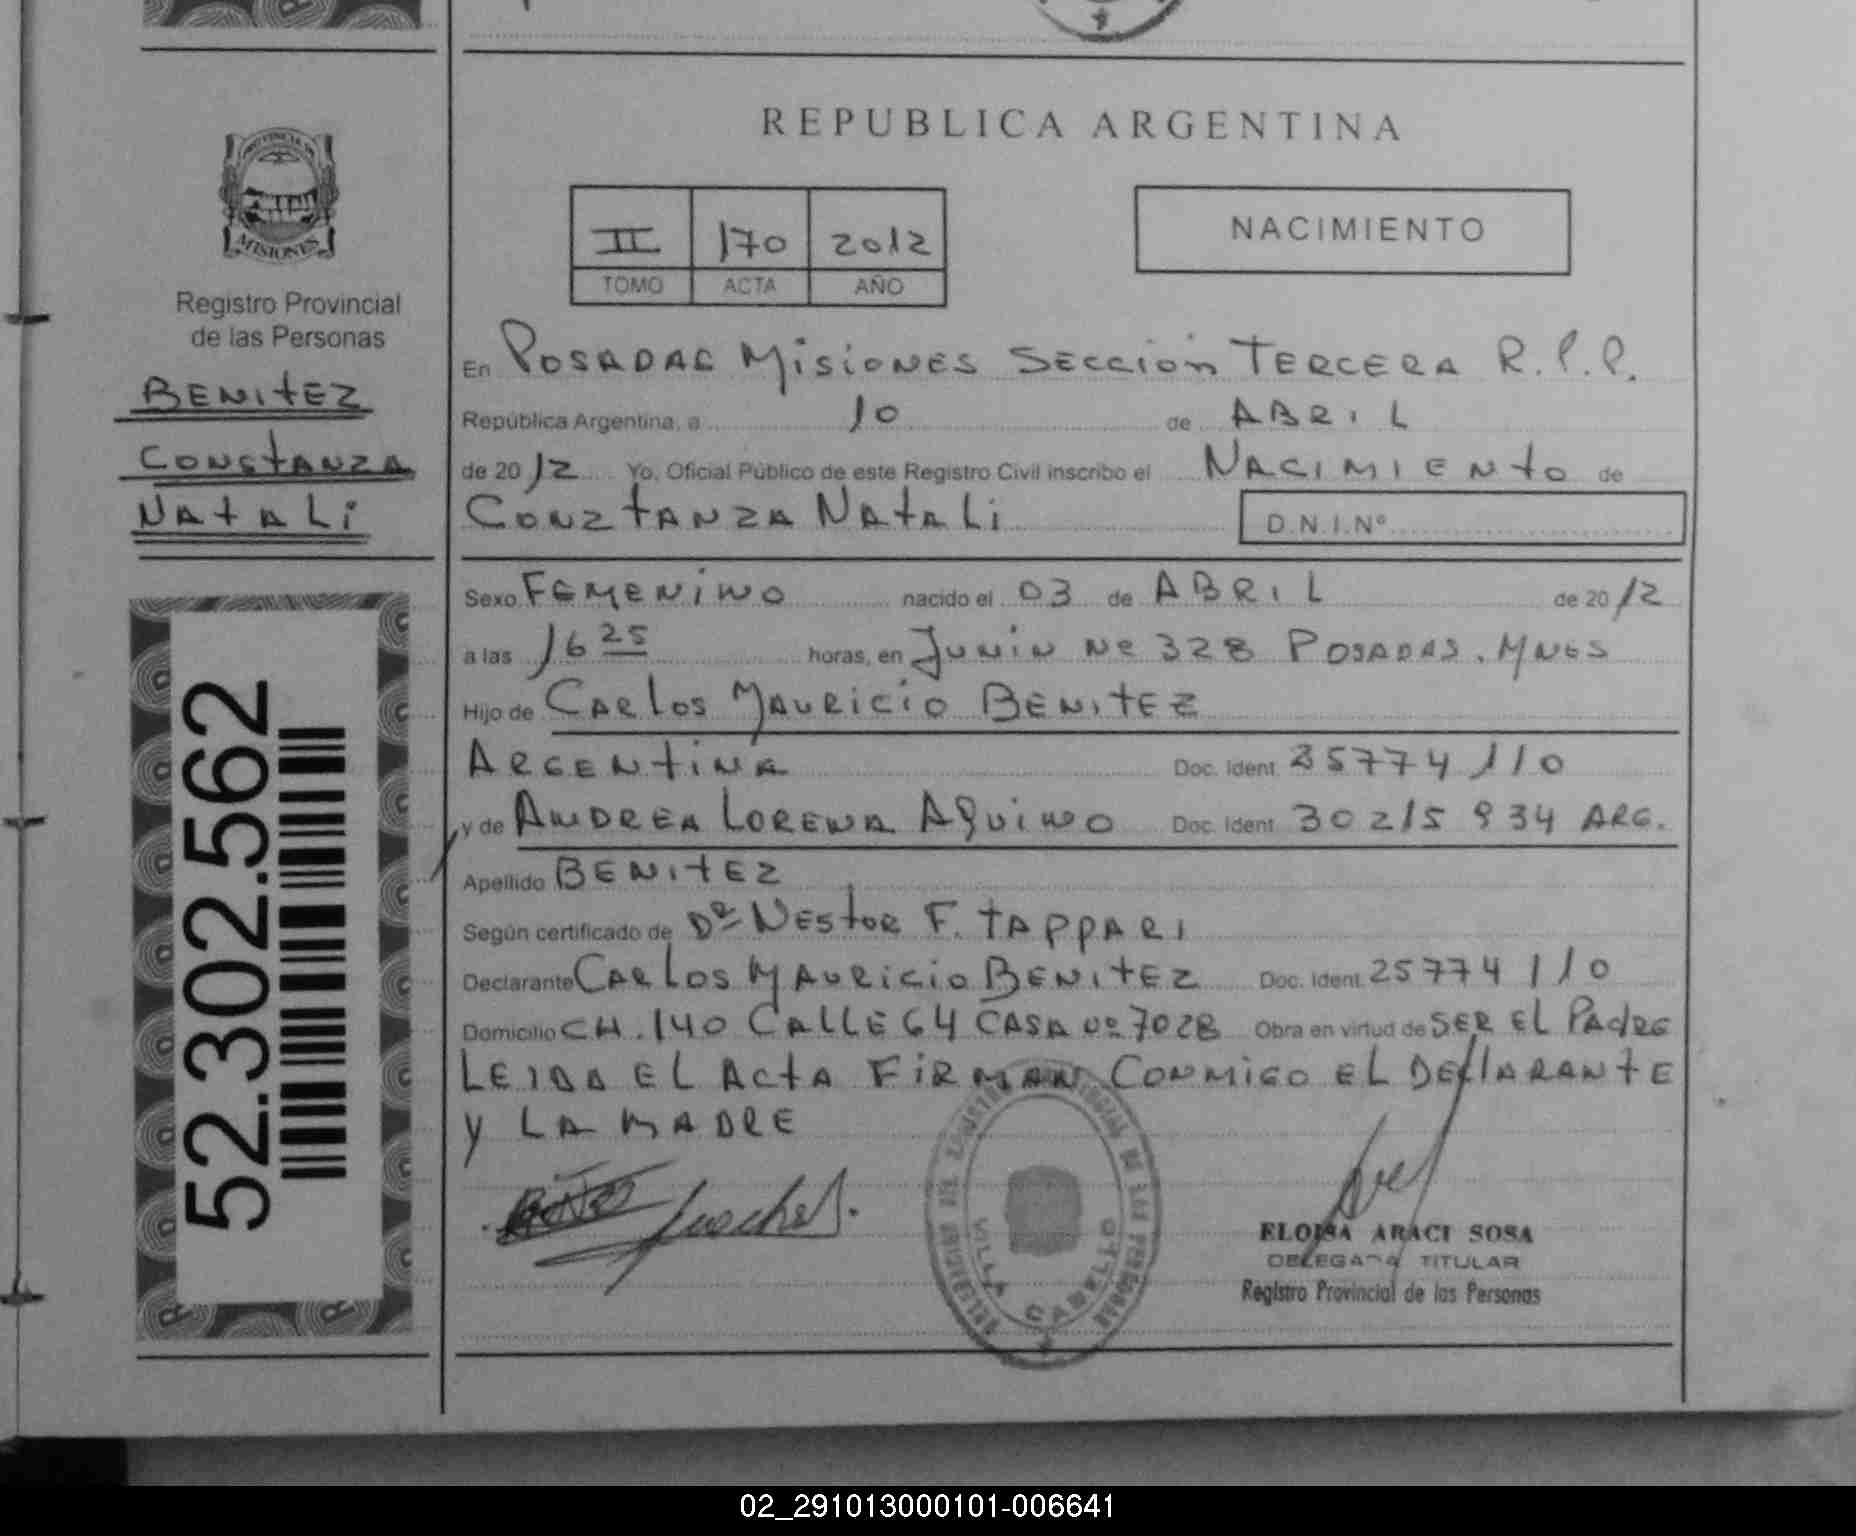 PROVINCIA DE
MISIONES
Registro Provincial
de las Personas
BENITEZ
CONSTANZA
NATALI
52.302.562
REPUBLICA ARGENTINA
II 170 2012
TOMO ACTA AÑO
NACIMIENTO
En POSADAS MISIONES SECCIÓN TERCERA R.P.P.
República Argentina, a 10 de ABRIL
de 2012 Yo, Oficial Público de este Registro Civil inscribo el NACIMIENTO de
CONZTANZA NATALI D.N.I.Nº
Sexo FEMENINO nacido el 03 de ABRIL de 2012
a las 16 25 horas, en JUNIN Nº 328 POSADAS. MNES
Hijo de CARLOS MAURICIO BENITEZ
ARGENTINA Doc. Ident. 25774110
y de ANDREA LORENA AQUINO Doc. Ident. 30215934 ARG.
Apellido BENITEZ
Según certificado de Dr NESTOR F. TAPPARI
Declarante CARLOS MAURICIO BENITEZ Doc. Ident. 25774110
Domicilio CH. 140 CALLE 64 CASA Nº 7028 Obra en virtud de SER EL PADRE
LEIDA EL ACTA FIRMAN CONMIGO EL DECLARANTE
Y LA MADRE
VILLA CABELLO
ELOISA ARACI SOSA
DELEGADA TITULAR
Registro Provincial de las Personas
02_291013000101-006641